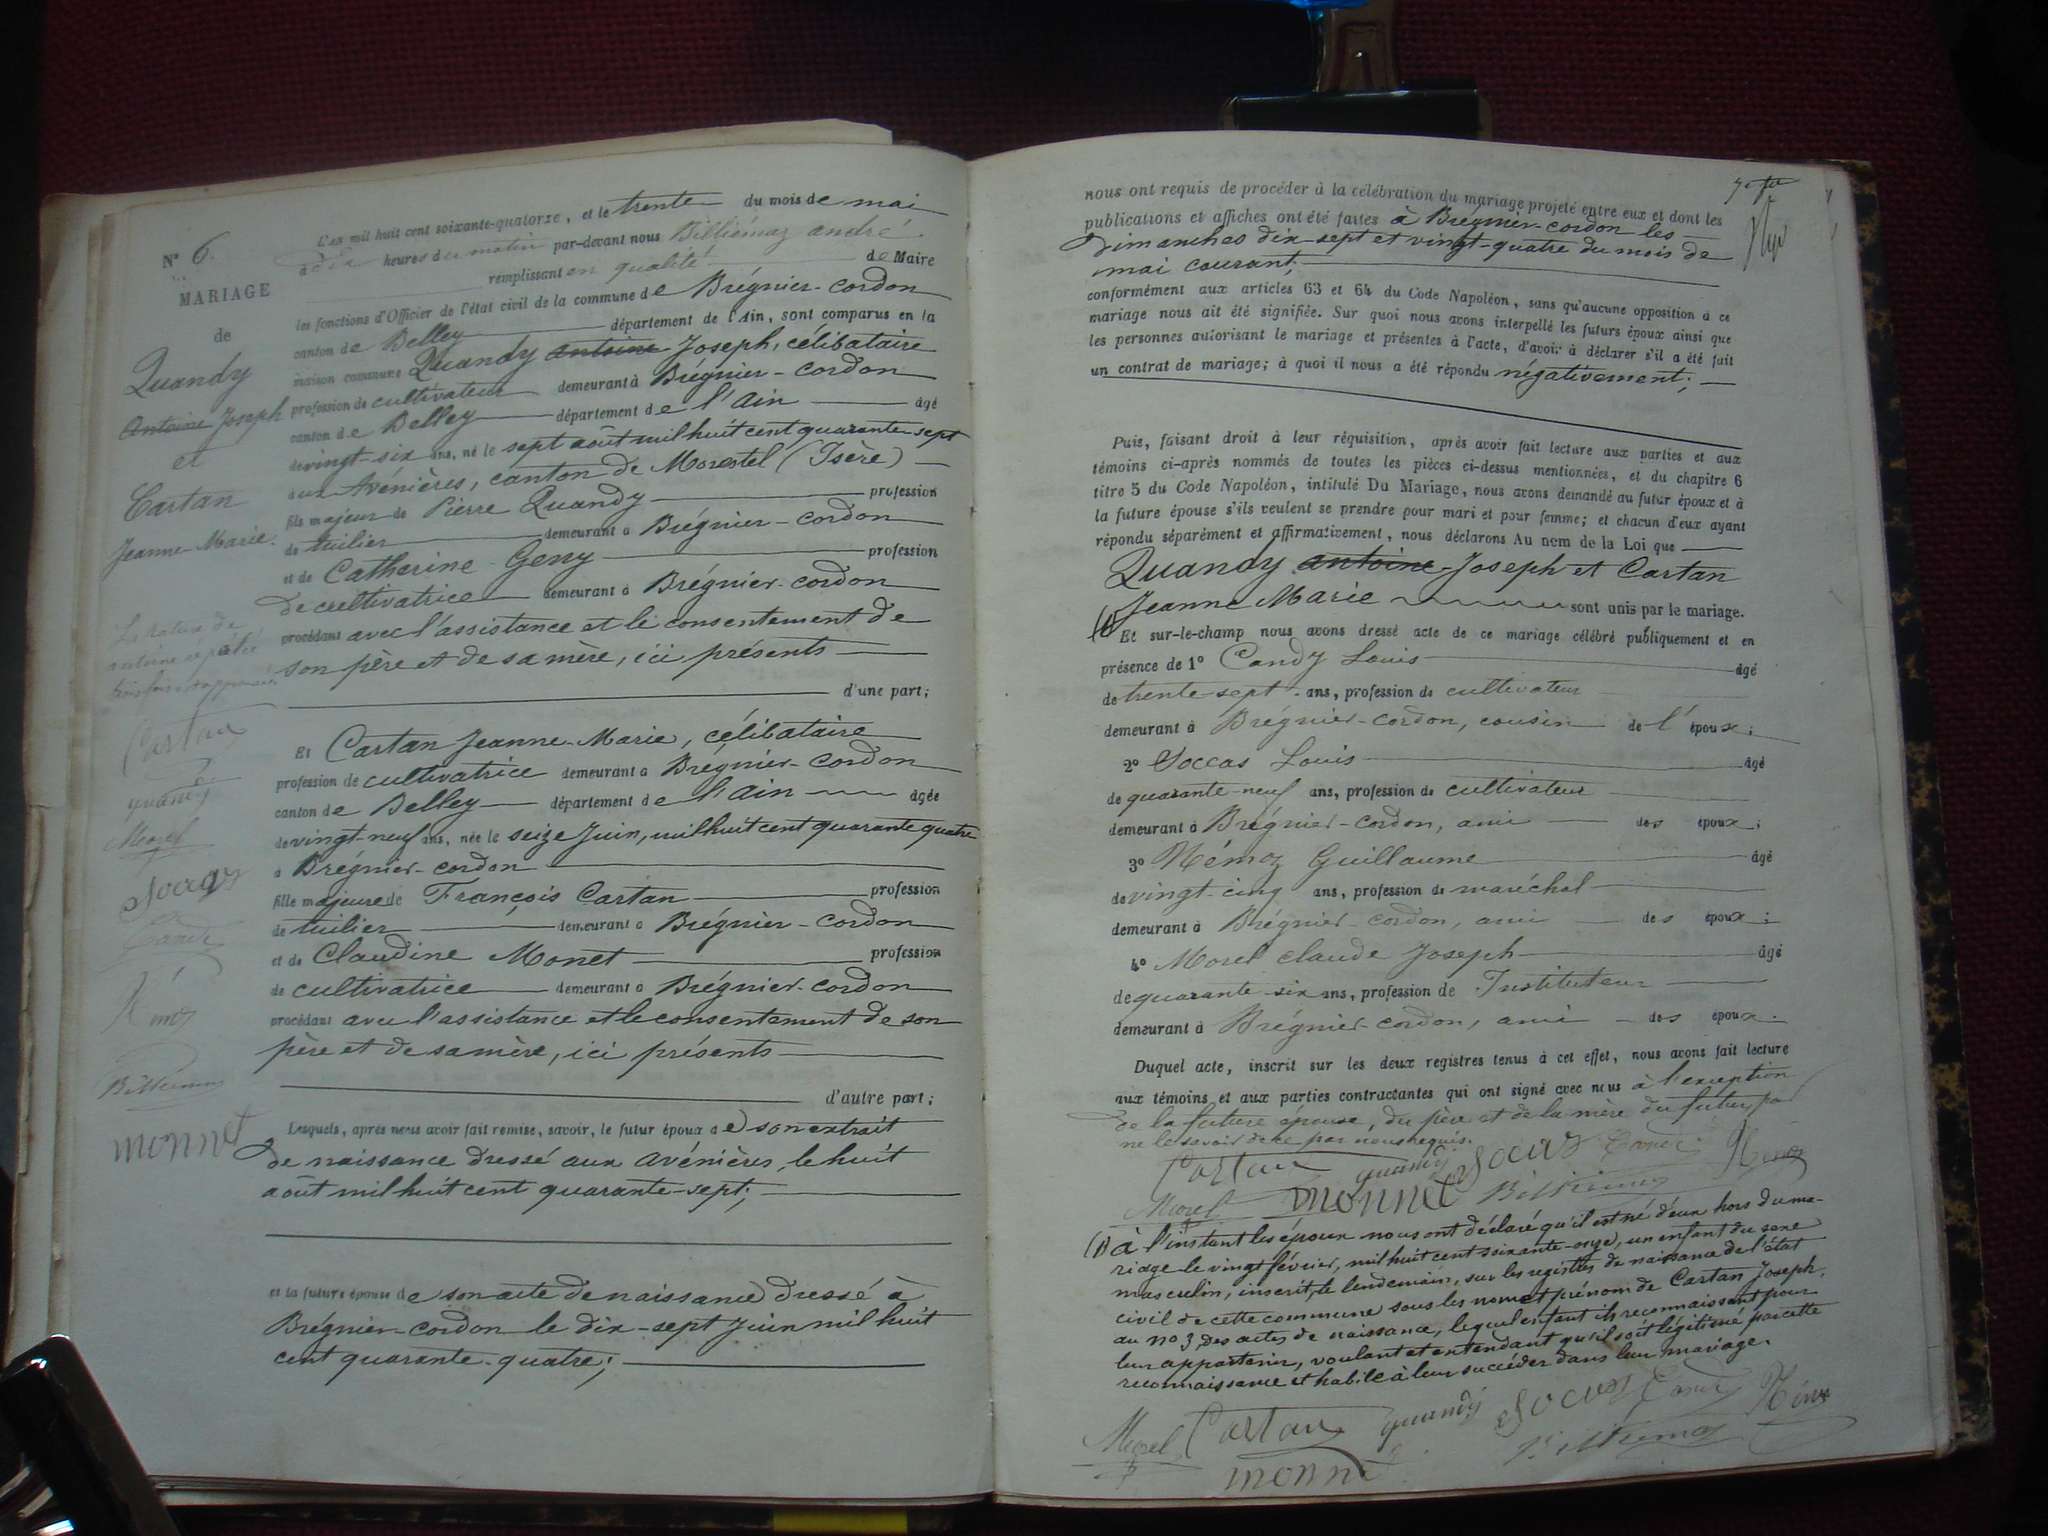 N° 6.
MARIAGE
de
Quandy
Antoine Joseph
et
Cartan
Jeanne-Marie.
La rature de
antoine répétée
trois fois est approuvée
Cartan
quandy
Morel
Socquas
Candi
Némoz
Billiemaz
monnet
L'an mil huit cent soixante-quatorze, et le trente du mois de mai
à dix heures du matin par-devant nous Billiémaz andré
remplissant en qualité de Maire
les fonctions d'Officier de l'état civil de la commune de Brégnier-cordon
canton de Belley département de l'Ain, sont comparus en la
maison commune Quandy antoine Joseph, célibataire
profession de cultivateur demeurant à Brégnier-cordon
canton de Belley département de l'ain âgé
de vingt-six ans, né le sept août mil huit cent quarante-sept
aux Avénières, canton de Morestel (Isère)
fils majeur de Pierre Quandy profession
de tuilier demeurant à Brégnier-cordon
et de Catherine Geny profession
de cultivatrice demeurant à Brégnier-cordon
procédant avec l'assistance et le consentement de
son père et de sa mère, ici présents
d'une part;
Et Cartan Jeanne-Marie, célibataire
profession de cultivatrice demeurant à Brégnier-cordon
canton de Belley département de l'ain âgée
de vingt-neuf ans, née le seize Juin, mil huit cent quarante quatre
à Brégnier-cordon
fille majeure de François Cartan profession
de tuilier demeurant à Brégnier-cordon
et de Claudine Monet profession
de cultivatrice demeurant à Brégnier-cordon
procédant avec l'assistance et le consentement de son
père et de sa mère, ici présents
d'autre part;
Lesquels, après nous avoir fait remise, savoir, le futur époux de son extrait
de naissance dressé aux avénières, le huit
août mil huit cent quarante-sept;
et la future épouse de son acte de naissance dressé à
Brégnier-cordon le dix-sept Juin mil huit
cent quarante-quatre;
nous ont requis de procéder à la célébration du mariage projeté entre eux et dont les
publications et affiches ont été faites à Brégnier-cordon les
Dimanches dix sept et vingt-quatre du mois de
mai courant;
conformément aux articles 63 et 64 du Code Napoléon, sans qu'aucune opposition à ce
mariage nous ait été signifiée. Sur quoi nous avons interpellé les futurs époux ainsi que
les personnes autorisant le mariage et présentes à l'acte, d'avoir à déclarer s'il a été fait
un contrat de mariage; à quoi il nous a été répondu négativement;
Puis, faisant droit à leur réquisition, après avoir fait lecture aux parties et aux
témoins ci-après nommés de toutes les pièces ci-dessus mentionnées, et du chapitre 6
titre 5 du Code Napoléon, intitulé Du Mariage, nous avons demandé au futur époux et à
la future épouse s'ils veulent se prendre pour mari et pour femme; et chacun d'eux ayant
répondu séparément et affirmativement, nous déclarons Au nom de la Loi que
Quandy antoine Joseph et Cartan
Jeanne Marie sont unis par le mariage.
(1) Et sur-le-champ nous avons dressé acte de ce mariage célébré publiquement et en
présence de 1° Candy Louis âgé
de trente-sept ans, profession de cultivateur
demeurant à Brégnier-cordon, cousin de l'époux;
2° Soccas Louis âgé
de quarante-neuf ans, profession de cultivateur
demeurant à Brégnier-cordon, ami des époux;
3° Némoz Guillaume âgé
de vingt-cinq ans, profession de maréchal
demeurant à Brégnier-cordon, ami des époux;
4° Morel claude Joseph âgé
de quarante-six ans, profession de Instituteur
demeurant à Brégnier-cordon, ami des époux.
Duquel acte, inscrit sur les deux registres tenus à cet effet, nous avons fait lecture
aux témoins et aux parties contractantes qui ont signé avec nous à l'exception
de la future épouse, du père et de la mère du futur, pour
ne le savoir de ce par nous requis.
Cartan quandy Socuas Candi Némoz
Morel monnet Billiemaz
(1) à l'instant les époux nous ont déclaré qu'il est né d'eux hors du ma-
riage le vingt février, mil huit cent soixante-onze, un enfant du sexe
masculin, inscrit, le lendemain, sur les registres de naissance de l'état
civil de cette commune sous les nom et prénom de Cartan Joseph,
au no 3 des actes de naissance, lequel enfant ils reconnaissent pour
leur appartenir, voulant et entendant qu'il soit légitimé par cette
reconnaissance et habile à leur succéder dans leur mariage.
Morel Cartan quandy Socuas Candi Némoz
monnet Billiemaz